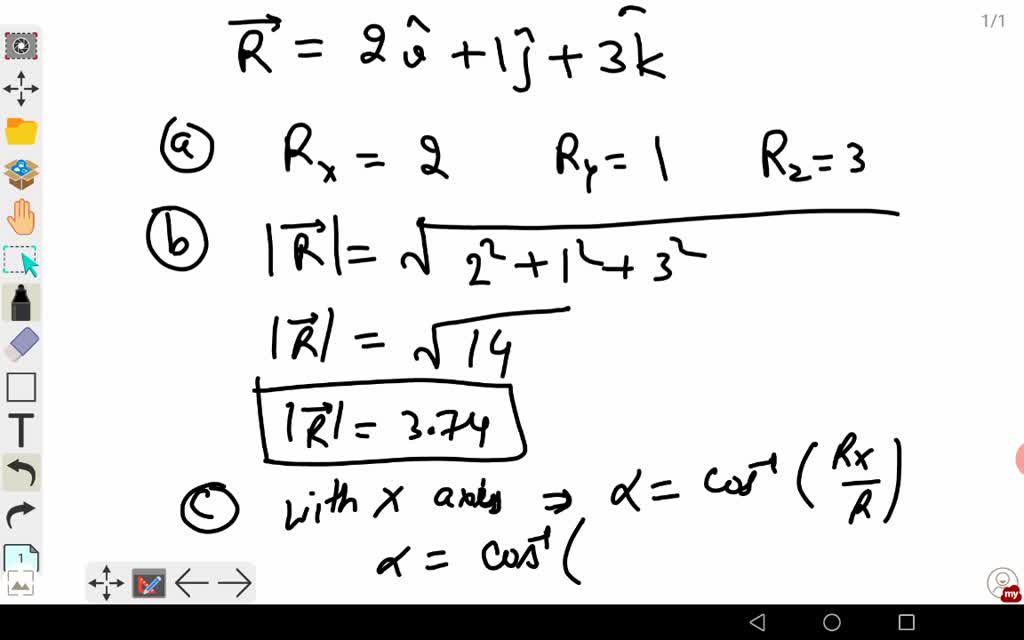 1/1
R⃗ = 2î + 1ĵ + 3k̂
(a) Rx = 2 Ry = 1 Rz = 3
(b) |R⃗| = √(2² + 1² + 3²)
|R⃗| = √14
|R⃗| = 3.74
(c) with x axis ⇒ α = cos⁻¹(Rx/R)
α = cos⁻¹(
T
1
my